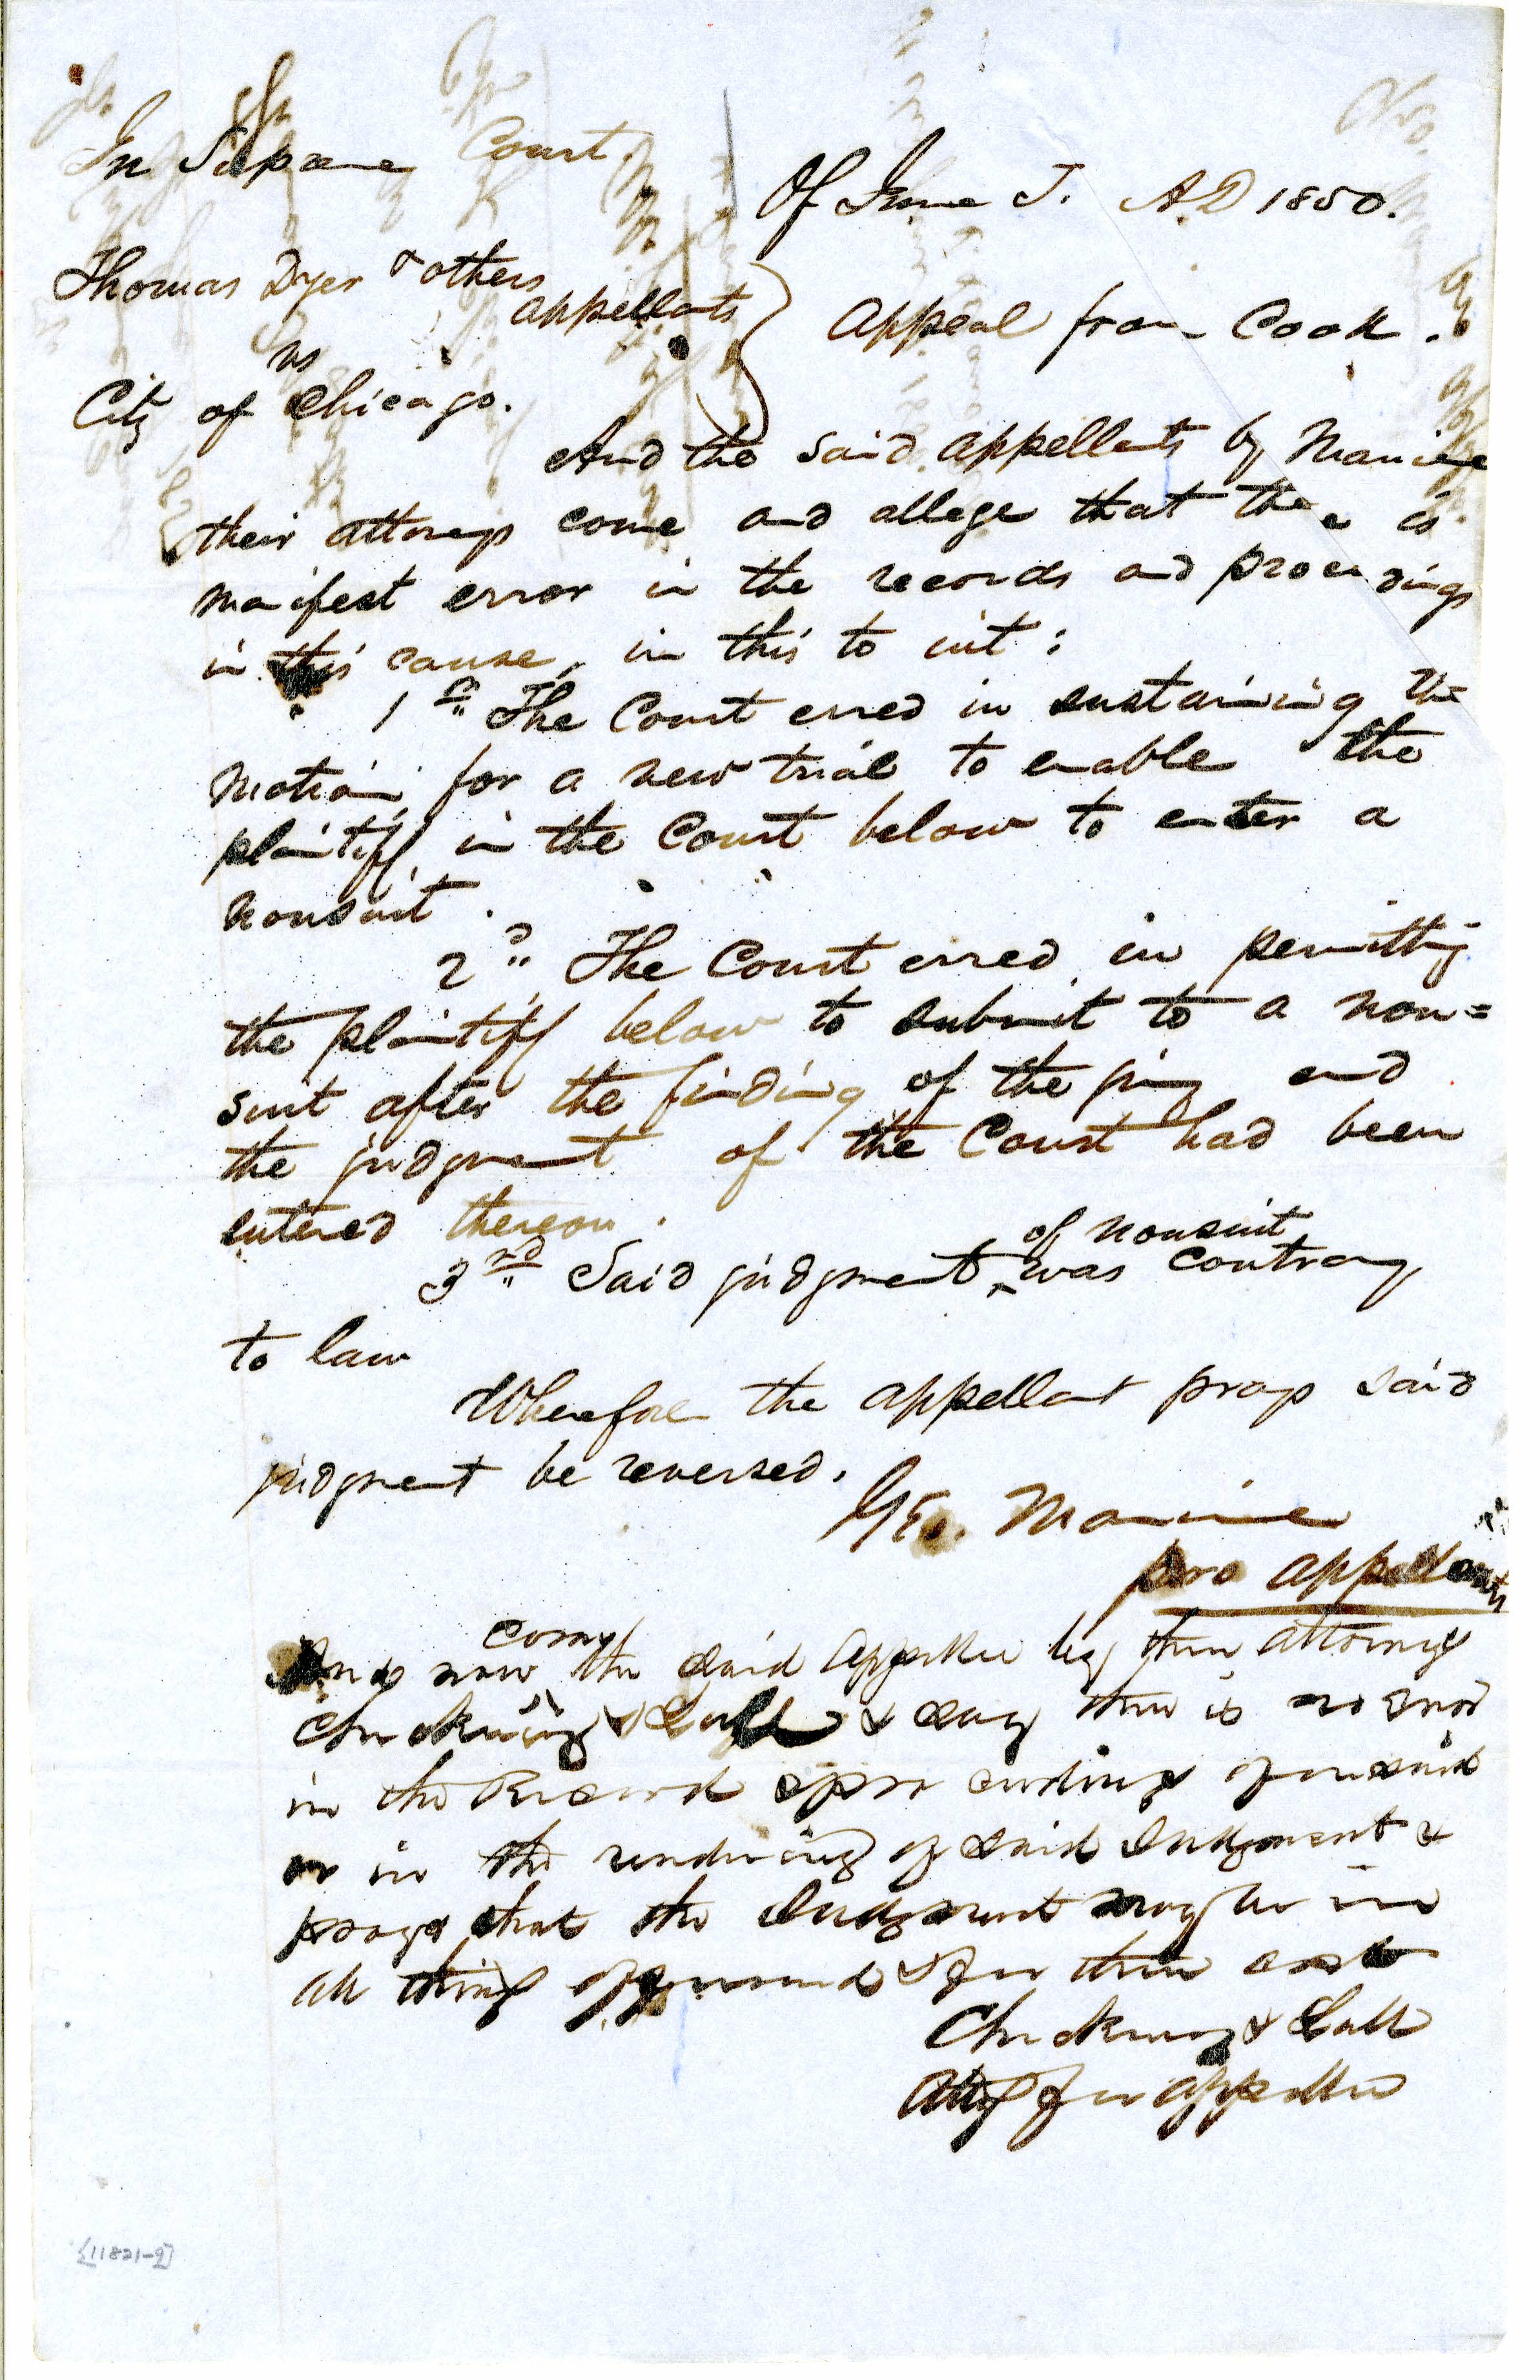 In Supreme Court.
Of June T. A.D 1850.
Thomas Dyer & others
appellants
vs
Appeal from Cook.
City of Chicago.
And the said appellants by Maniere
their attorneys come and allege that there is
manifest error in the records and proceedings
in this cause, in this to wit:
1st The Court erred in sustaining the
motion for a new trial to enable the
plaintiff in the Court below to enter a
nonsuit.
2d The Court erred in permitting
the plaintiff below to submit to a non=
suit after the finding of the jury and
the judgment of the Court had been
entered thereon.
of nonsuit
3rd Said judgment ^ was contrary
to law
Wherefore the appellant prays said
judgment be reversed.
Geo. Maniere
pro appellants
comes
And now ^ the said appellee by their attorneys
& say there is no error
in the Record & proceedings aforesaid
or in the rendering of said Judgment &
prays that the Judgment may be in
all things affirmed & for their cost
Attys for appellee
[11821-9]